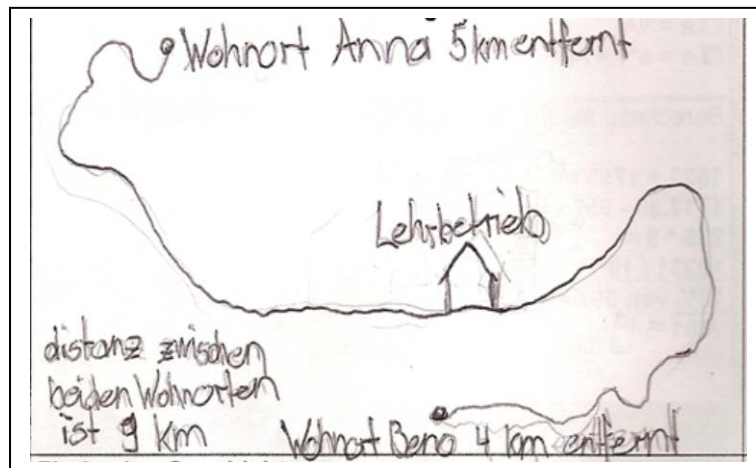 Wohnort Anna 5km entfernt
Lehrbetrieb
distanz zwischen
beiden Wohnorten
ist 9 km
Wohnort Beno 4 km entfernt